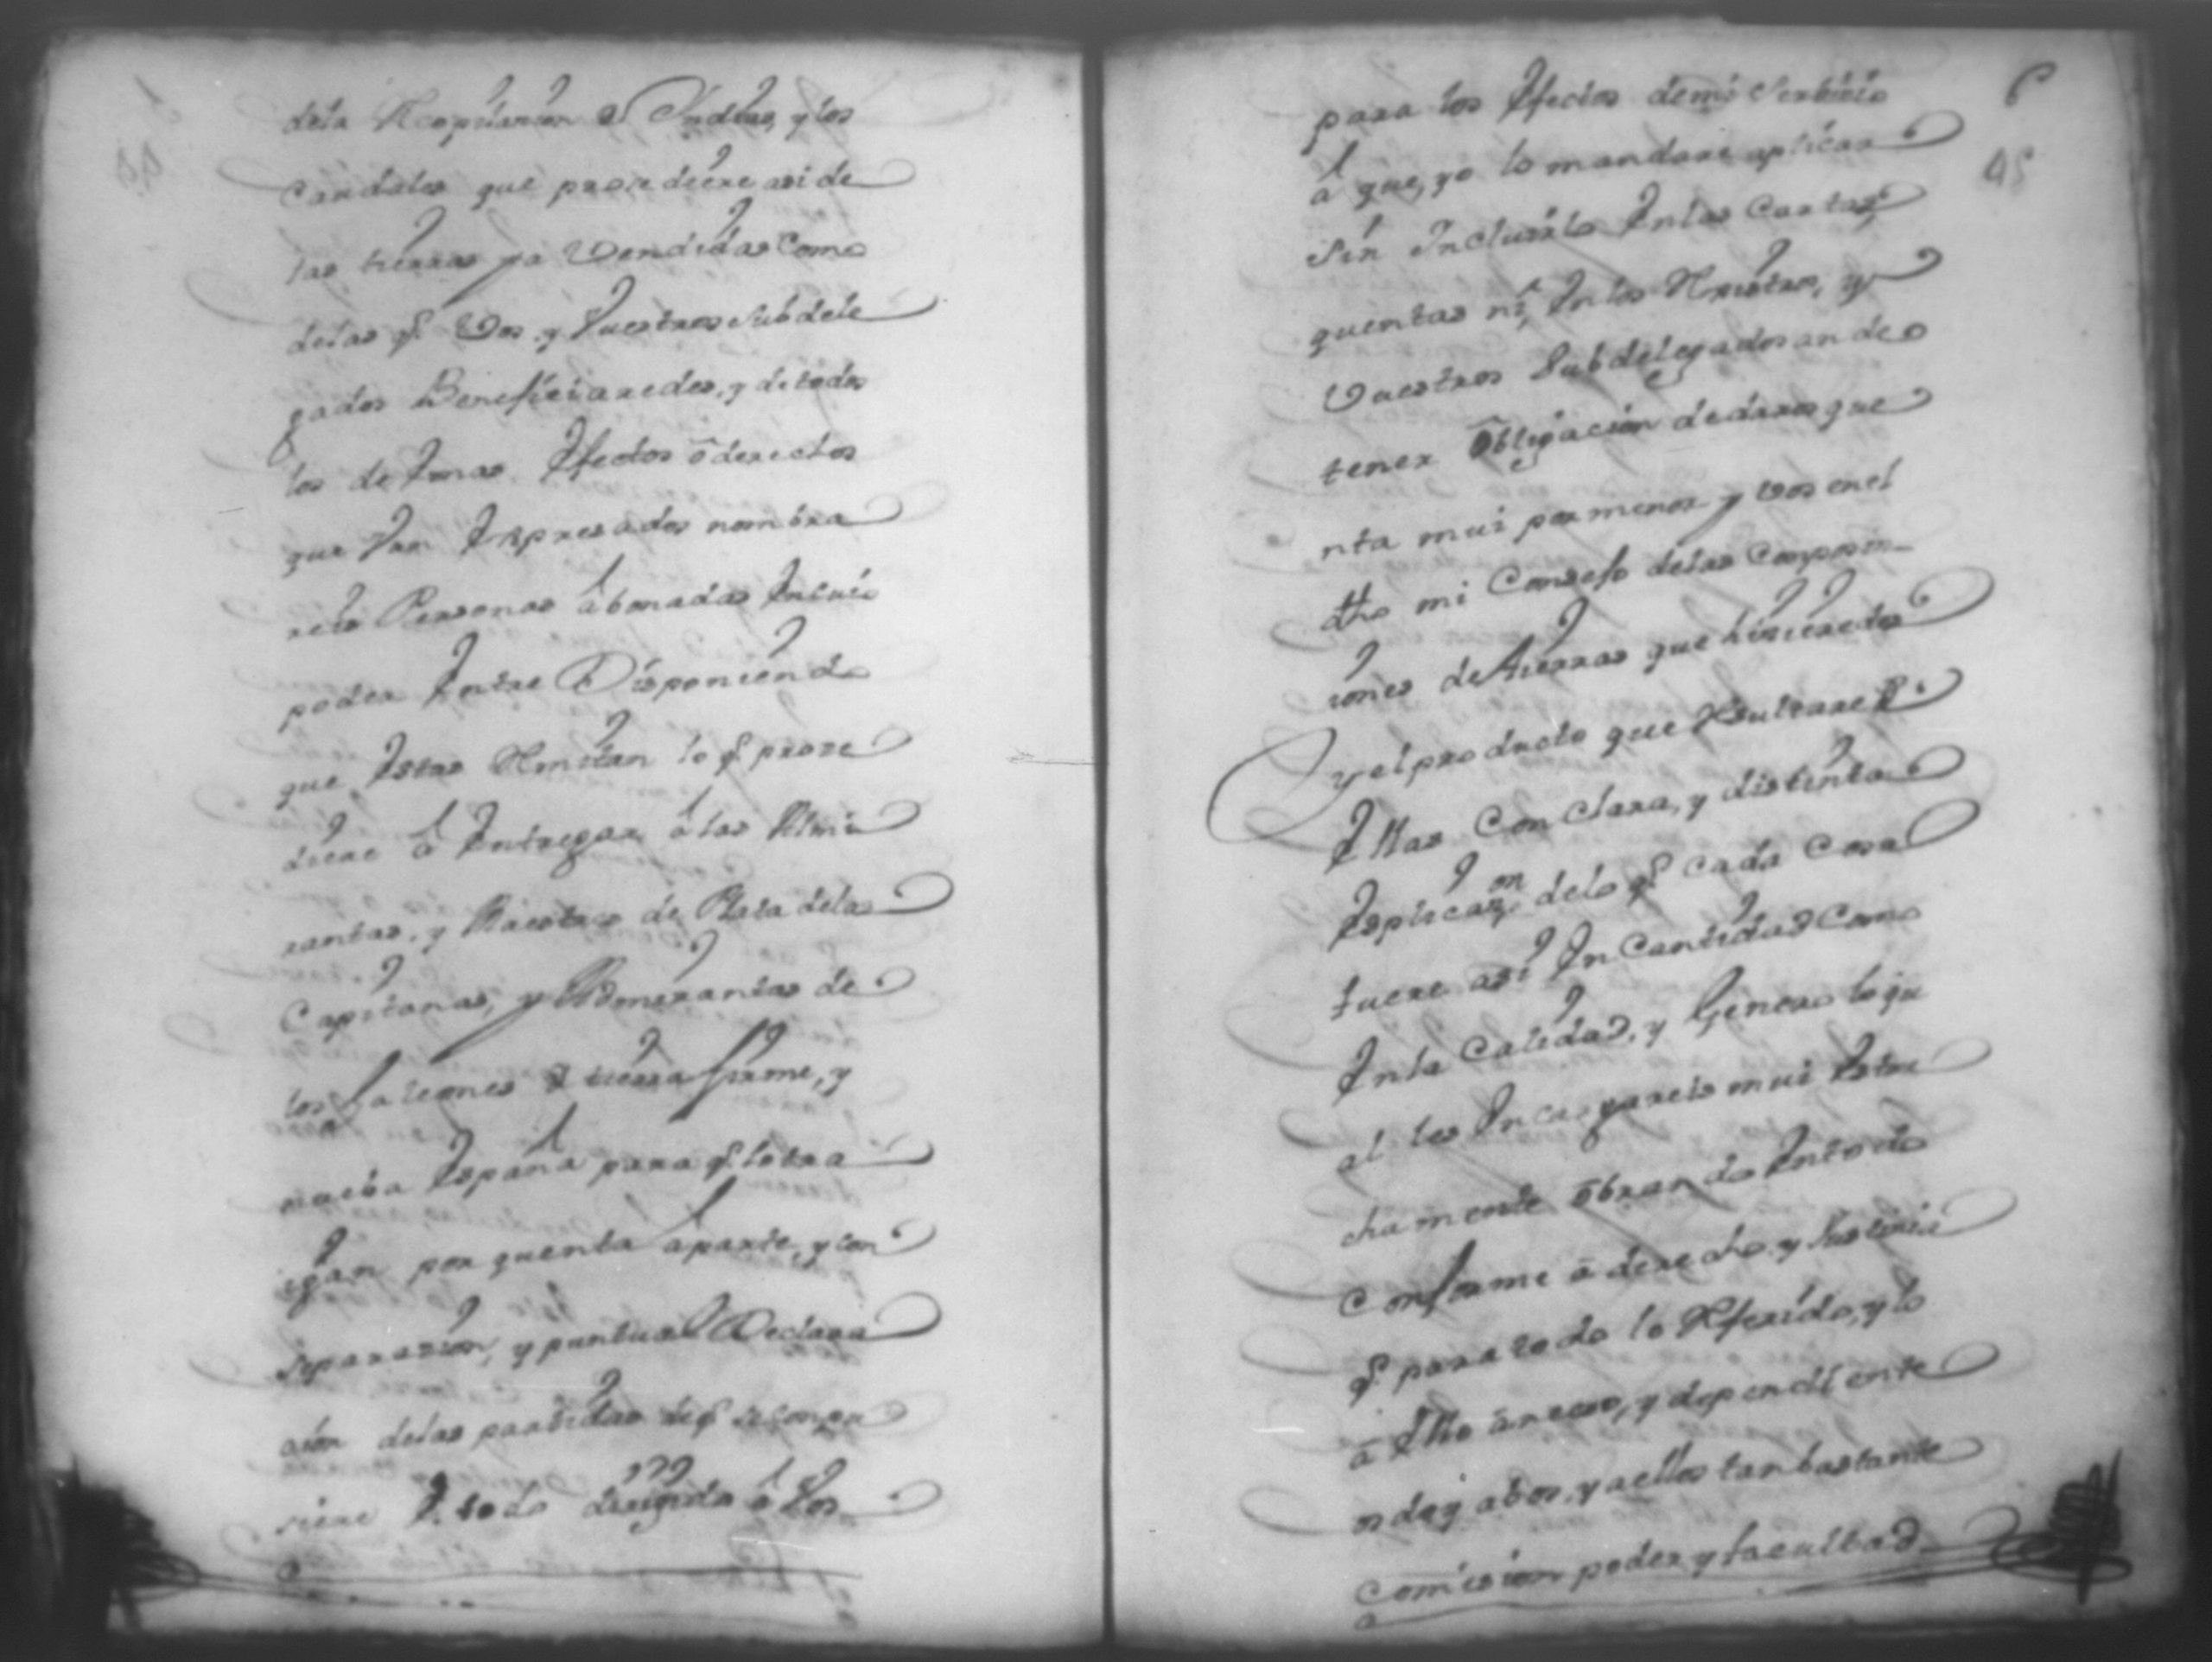 dela Recopilazion de Yndias, y los
Caudales que prozediere asi de
las tierras ya Vendidas Como
delas q.e Vos y Vuestros Subdele
gados Beneficiaredes, y de todos
los de Emas Efectos ō derechos
que Van Expresados nombra
reis Personas abonadas En cuio
poder Entre Disponiendo
que Estas Remitan lo q.e proze
diere â Entregar â las Almi
rantas, y Maestres de Plata delas
Capitanas, y Almirantas de
los Galeones de tierra firme, y
nueba España para q.e lo tra
igan por quenta aparte, y con
separazion, y puntual Declara
zion delas partidas de q.e se compu
siere E. todo dirigido â Vos
6
45
para los Efectos de mi Serbicio
â que, yo lo mandare aplicar
Sin Incluirlo En las Cartas
quentas ni, En los Registros, y
Vuestros Subdelegados an de
tener ōbligacion de daros que
nta mui por menor y Vos en el
dho mi Consejo delas Composiz
iones de tierras que hizieredes
y el producto que Resultare De
Ellas Con Clara, y distinta
Esplicaz.on delo q.e cada Cosa
fuere asi En Cantidad Como
En la Calidad, y Genero lo qu
al les Encargareis mui Estre
chamente ōbrando En todo
Conforme ā derecho y Justicia
q.e para todo lo Referido, y lo
ā Ello ānexo, y dependiente
os doy a bos, y a ellos tan bastante
Comision poder y facultad